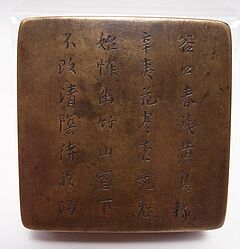 谷口春殘黄鳥稀
辛夷花尽杏花飛
始憐幽竹山窓下
不改清陰待我归